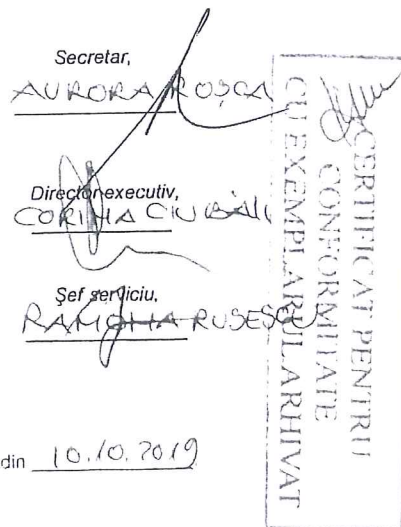 Secretar,
AURORA ROȘCA
Director executiv,
CORINA
Șef serviciu,
RAMONA RUSESCU
din 10.10.2019
CERTIFICAT PENTRU
CONFORMITATE
CU EXEMPLARUL ARHIVAT